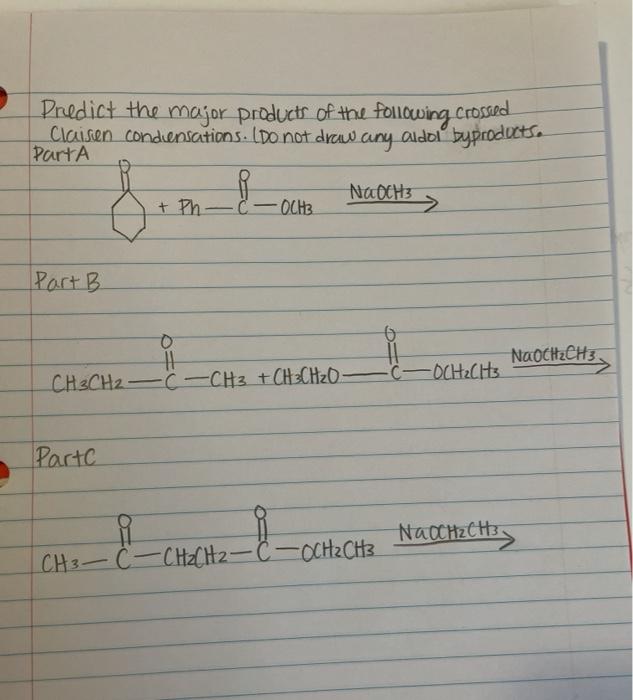 Predict the major products of the following crossed
Claisen condensations. (Do not draw any aldol byproducts.
Part A
O
O
+ Ph — C — OCH3 NaOCH3
Part B
O
O
CH3CH2 — C — CH3 + CH3CH2O — C — OCH2CH3 NaOCH2CH3
Part C
O
O
CH3 — C — CH2CH2 — C — OCH2CH3 NaOCH2CH3